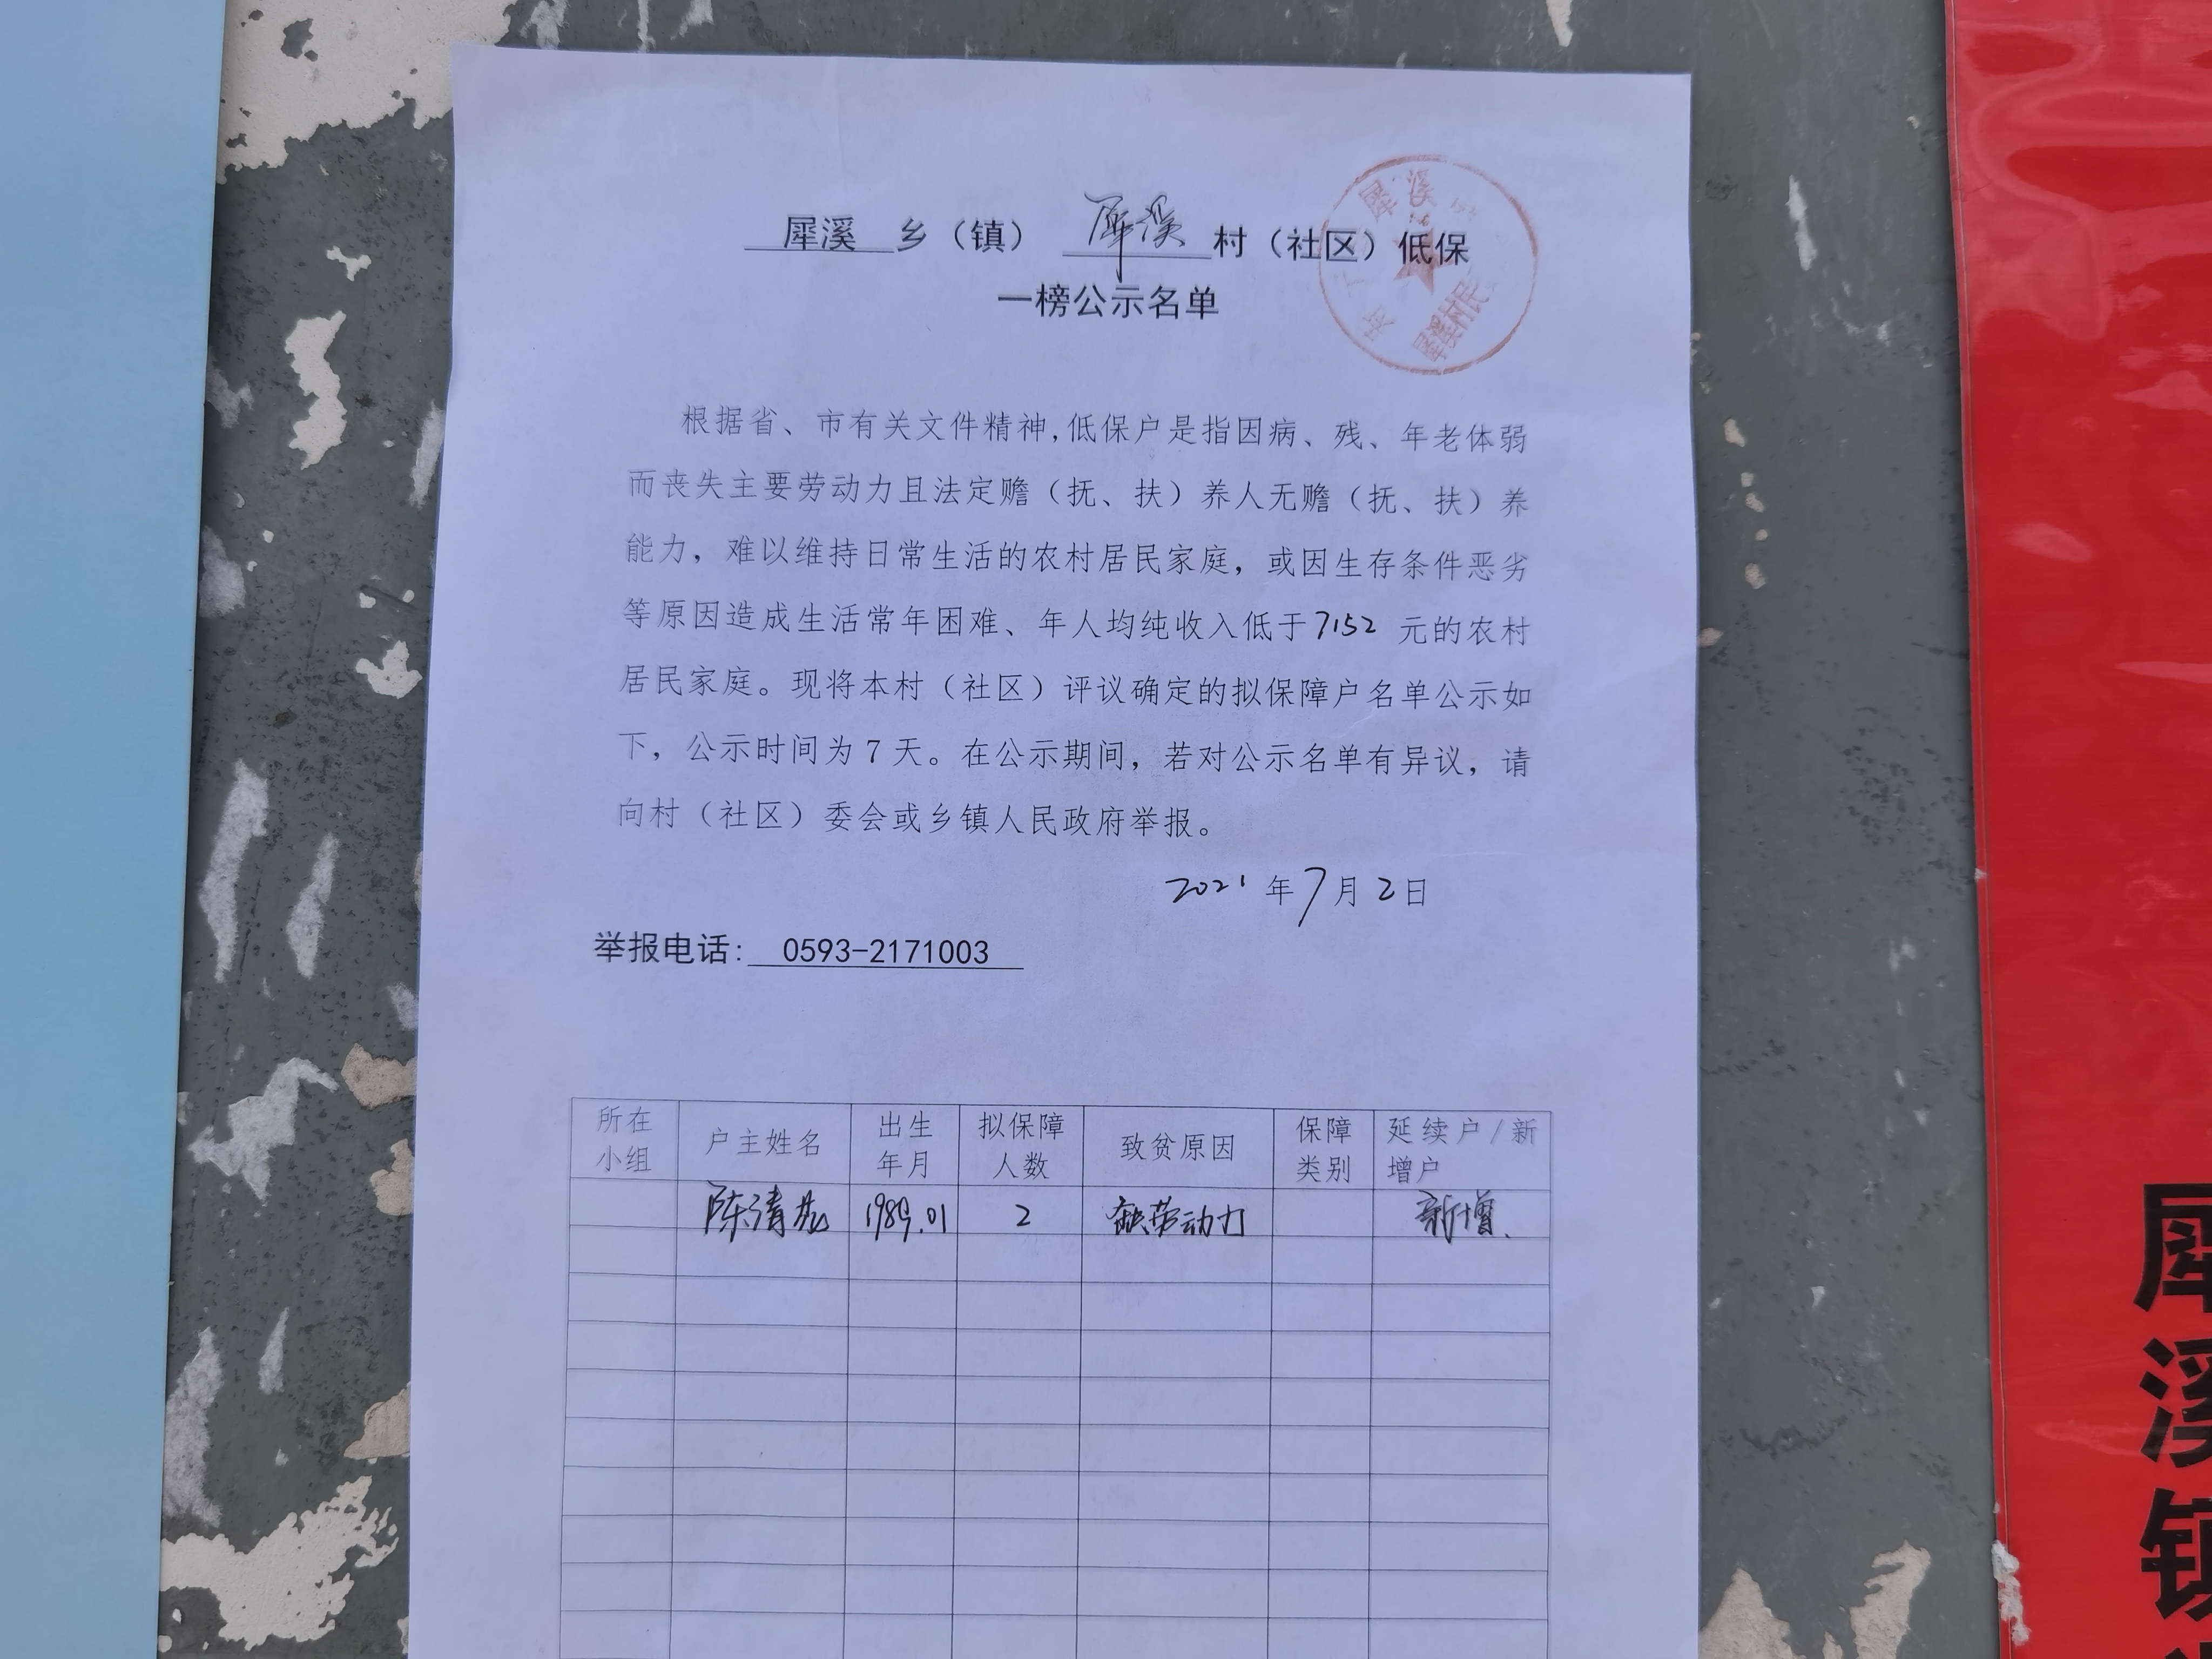 犀溪 乡（镇） 犀溪 村（社区）低保
一榜公示名单
犀溪
犀溪村民
根据省、市有关文件精神,低保户是指因病、残、年老体弱
而丧失主要劳动力且法定赡（抚、扶）养人无赡（抚、扶）养
能力，难以维持日常生活的农村居民家庭，或因生存条件恶劣
等原因造成生活常年困难、年人均纯收入低于7152 元的农村
居民家庭。现将本村（社区）评议确定的拟保障户名单公示如
下，公示时间为 7 天。在公示期间，若对公示名单有异议，请
向村（社区）委会或乡镇人民政府举报。
2021 年 7 月 2 日
举报电话: 0593-2171003
所在小组 户主姓名 出生年月 拟保障人数 致贫原因 保障类别 延续户/新增户
陈清 1989.01 2 缺劳动力 新增.
犀溪镇